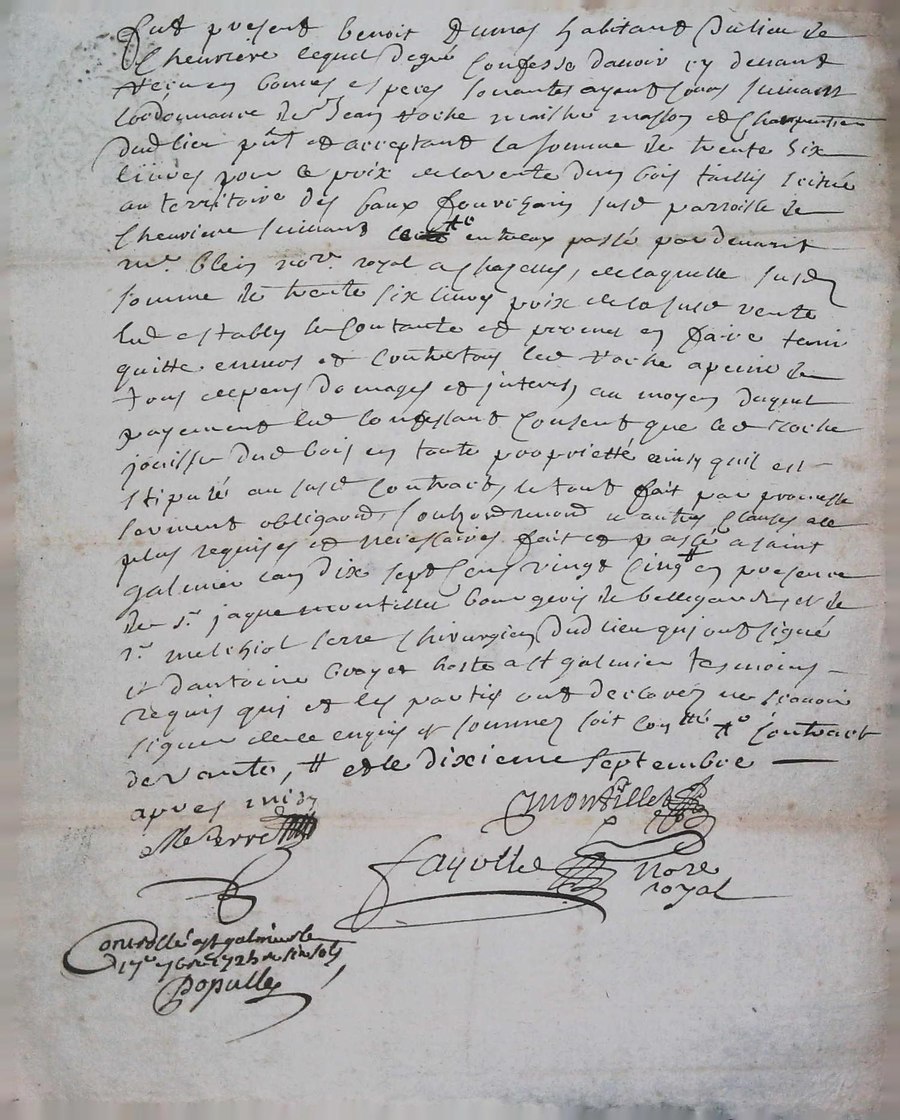 fut present benoit Dumas habitant du lieu de
Chevriere lequel de gré Confesse davoir cy devant
receu en bonnes especes sonantes ayant cours suivant
lordonnance de Sr Jean roche maistre masson et Charpentier
dud lieu pnt et acceptant la somme de trente six
livres pour le prix de la vente dun bois taillis scitué
au territoire des susd parroisse de
Chevriere suivant entreux passé pardevant
me. blein nore. royal a Chazelles, de laquelle susd
somme de trente six livres prix de la susd vente
led estably se Contante et promet en faire tenir
quitte envers et Contre tous led roche a peine de
tous despens domages et interest, au moyen duquel
payement led Confessant Consent que led Roche
jouisse dud bois en toute proprietté ainsy quil est
stipulé au susd Contract, le tout fait par promesse
serment obligaon, soub et autres clauses
plus requises et necessaires fait et passé a saint
galmier lan dix sept Cens vingt cinq # en presence
de sr. jaque montillet bourgeois de bellegarde, et de
sr. melchiol serre Chirurgien dud lieu qui ont signé
et dantoine hoste a st galmier tesmoins
requis qui et les partis ont declarez ne scavoir
signer de ce enquis et sommez soit Contrôllé to Contract
de vante, # et le dixieme septembre
apres midy
Montillet
MSerre
fayolle nore
royal
Controllé a st galmier le
17e 7bre 1725
Populle